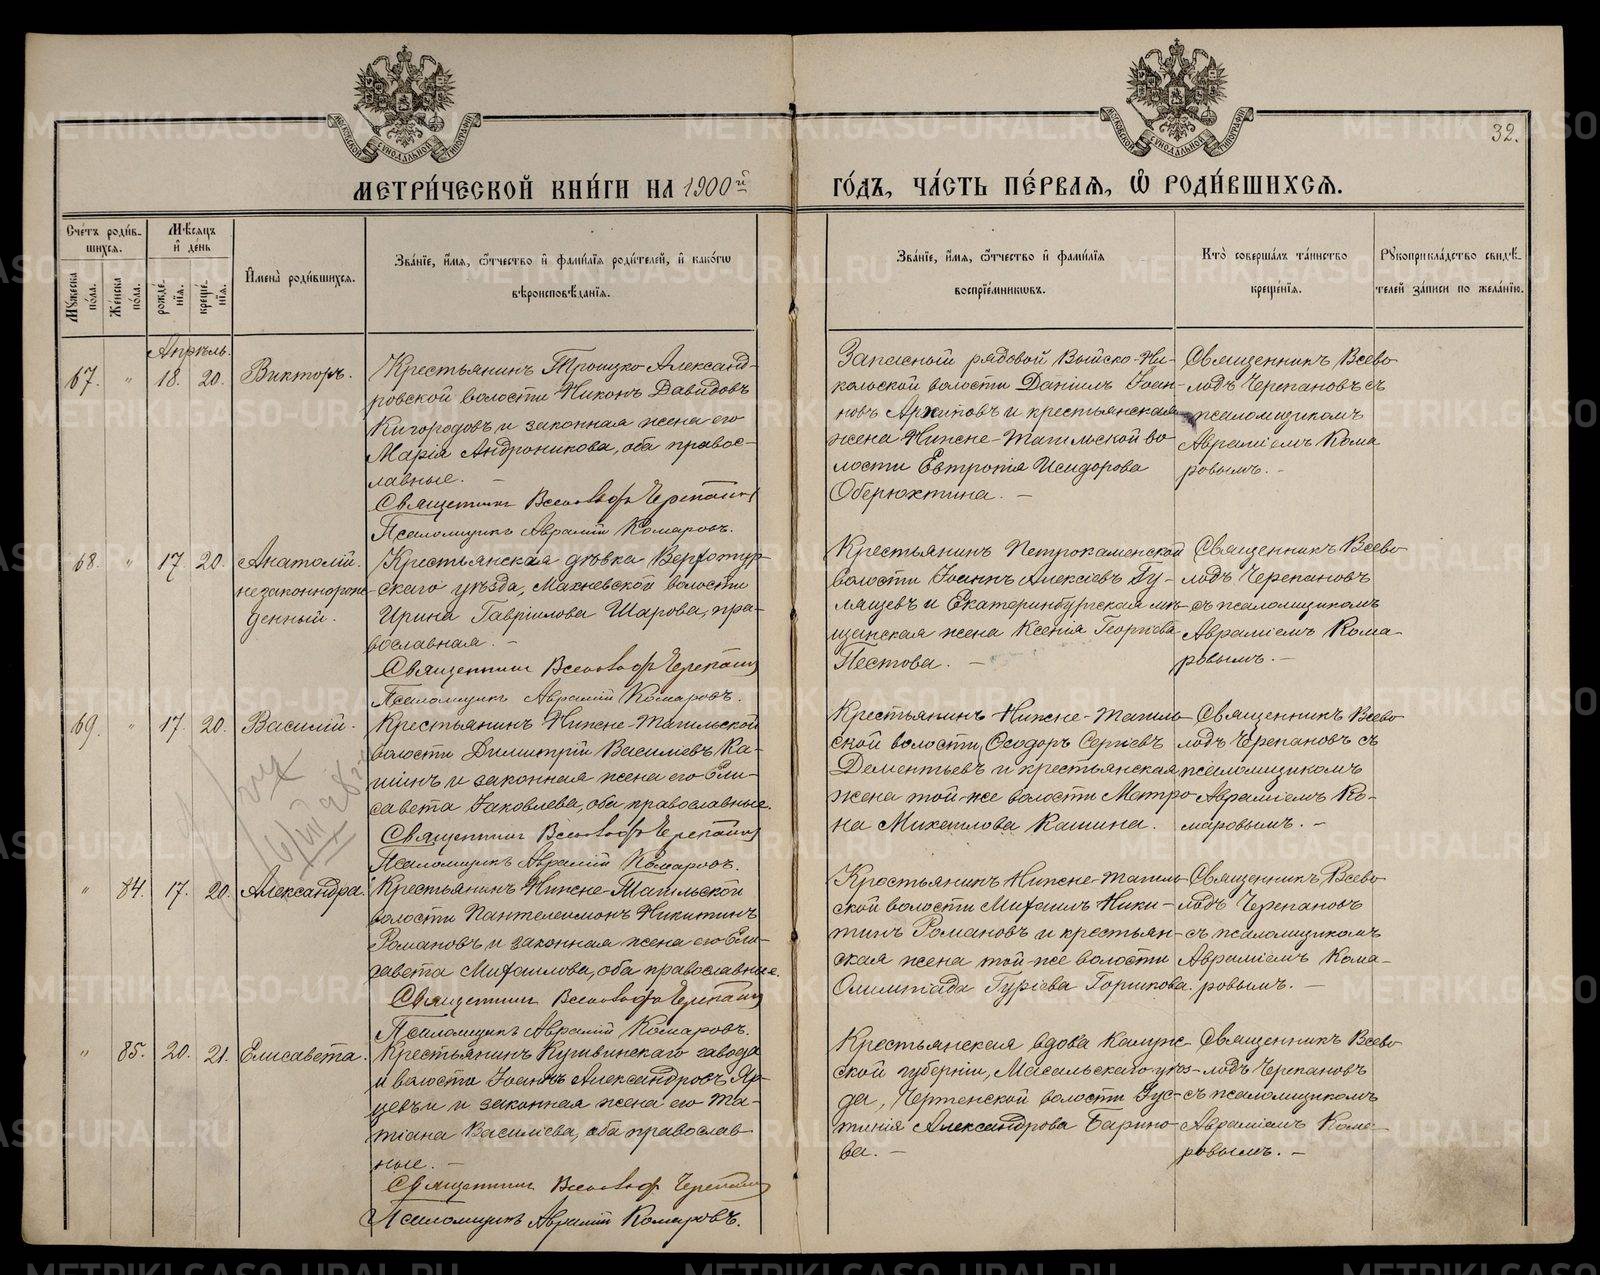 32.
МОСКОВСКОЙ СѴНОДАЛЬНОЙ ТИПОГРАФІИ
МОСКОВСКОЙ СѴНОДАЛЬНОЙ ТИПОГРАФІИ
МЕТРИ́ЧЕСКОЙ КНИ́ГИ НА 1900й
ГО́ДЪ, ЧА́СТЬ ПЕ́РВАЯ, Ѽ РОДИ́ВШИХСЯ.
Сче́тъ роди́в-
шихся.
Мѣ́сяцъ
и҆ де́нь
Мꙋ́жеска
по́ла.
Же́нска
по́ла.
рожде́-
нїя.
креще́-
нїя.
И҆мена̀ роди́вшихся.
Зва́нїе, и҆́мя, ѻ҆́тчество и҆ фами́лїя роди́телей, и҆ како́гѡ
вѣроисповѣ́данїя.
Зва́нїе, и҆́мя, ѻ҆́тчество и҆ фами́лїя
воспрїе́мникѡвъ.
Кто̀ соверша́лъ та́инство
креще́нїя.
Рꙋкоприкла́дство свидѣ́-
телей за́писи по жела́нїю.
Апрѣль.
67. " 18. 20. Викторъ.
Крестьянинъ Троицко-Александ-
ровской волости Никонъ Давидовъ
Кигородовъ и законная жена его
Марія Андроникова, оба правос-
лавные. —
Священникъ Всеволодъ Черепановъ
Псаломщикъ Аврамій Комаровъ.
Запасный рядовой Выйско-Ни-
кольской волости Даніилъ Іоан-
новъ Архиповъ и крестьянская
жена Нижне-Тагильской во-
лости Евтропія Исидорова
Оберюхтина. —
Священникъ Всево-
лодъ Черепановъ съ
псаломщикомъ
Авраміемъ Кома
ровымъ. —
68. " 17. 20. Анатолій.
незаконнорож-
денный.
Крестьянская дѣвка Верхотур-
скаго уѣзда, Махневской волости
Ирина Гавріилова Шарова, пра-
вославная. —
Священникъ Всеволодъ Черепановъ
Псаломщикъ Аврамій Комаровъ.
Крестьянинъ Петрокаменской
волости Іоаннъ Алексіевъ Гу-
лящевъ и Екатеринбургская мѣ-
щанская жена Ксенія Георгіева
Пестова. —
Священникъ Всево
лодъ Черепановъ
съ псаломщикомъ
Авраміемъ Кома-
ровымъ. —
69. " 17. 20. Василій.
Крестьянинъ Нижне-Тагильской
волости Димитрій Василіевъ Ка-
шинъ и законная жена его Ели-
савета Іаковлева, оба православные.
Священникъ Всеволодъ Черепановъ
Псаломщикъ Аврамій Комаровъ.
Крестьянинъ Нижне-Тагиль-
ской волости, Ѳеодоръ Сергіевъ
Дементьевъ и крестьянская
жена той-же волости Матро
на Михаилова Кашина.
Священникъ Всево
лодъ Черепановъ съ
псаломщикомъ
Авраміемъ Ко-
маровымъ. —
" 84. 17. 20. Александра.
Крестьянинъ Нижне-Тагильской
волости Пантелеимонъ Никитинъ
Романовъ и законная жена его Ели-
савета Михаилова, оба православные.
Священникъ Всеволодъ Черепановъ
Псаломщикъ Аврамій Комаровъ.
Крестьянинъ Нижне-Тагиль
ской волости Михаилъ Ники-
тинъ Романовъ и крестьян-
ская жена той-же волости
Олимпіада Гуріева Горшкова.
Священникъ Всево
лодъ Черепановъ
съ псаломщикомъ
Авраміемъ Кома-
ровымъ. —
" 85. 20. 21. Елисавета.
Крестьянинъ Кушвинскаго завода
и волости Іоаннъ Александровъ Яр-
цевъ и законная жена его Та-
тіана Василіева, оба православ
ные. —
Священникъ Всеволодъ Черепановъ
Псаломщикъ Аврамій Комаровъ.
Крестьянская вдова Калуж-
ской губерніи, Масальскаго уѣз-
да, Чертенской волости Іус-
тинія Александрова Барино-
ва. —
Священникъ Всево
лодъ Черепановъ
съ псаломщикомъ
Авраміемъ Кома-
ровымъ. —
METRIKI.GASO-URAL.RU